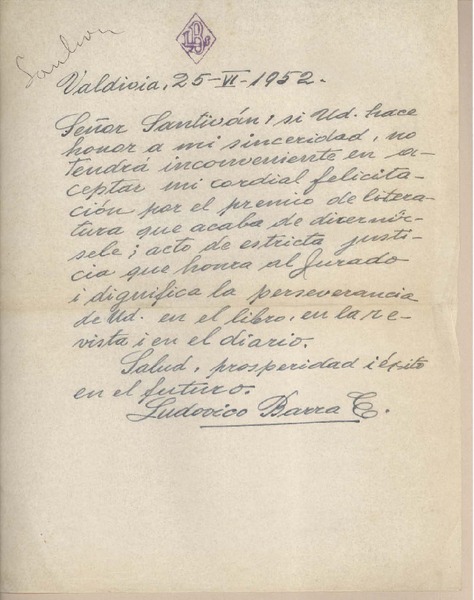 Valdivia, 25-VI-1952.
Señor Santiván: si Ud. hace
honor a mi sinceridad, no
tendrá inconveniente en a-
ceptar mi cordial felicita-
ción por el premio de litera-
tura que acaba de discernír-
sele; acto de estricta justi-
cia que honra al Jurado
i dignifica la perseverancia
de Ud. en el libro, en la re-
vista i en el diario.
Salud, prosperidad i éxito
en el futuro.
Ludovico Barra C.